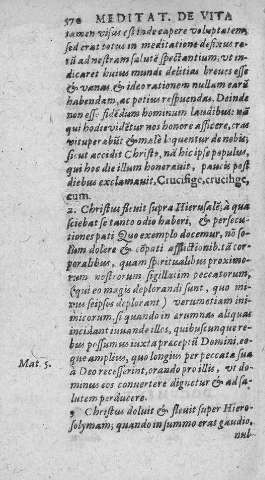 570 MEDITAT. DE VITA
tamen visus est inde capere voluptatem,
sed erat totus in meditatione defixus re-
rū ad nostram salutē spectantium, vt in-
dicaret huius mundi delitias breues esse
& vanas & ideo rationem nullam earū
habendam, ac petius respuendas. Deinde
non esse fidēdum hominum laudibus: nā
qui hodie vidētur nos honore afficere, cras
vituperabūt & malè loquentur de nobis,
sicut accidit Christo, nā hic ipse populus,
qui hoc die illum honorauit, paucis post
diebus exclamauit, Crucifige, crucifige,
eum.
2. Christus fleuit supra Hierusalē, à qua
sciebat se tanto odio haberi, & persecu-
tiones pati Quo exemplo docemur, nō so-
lum dolere & cōpati afflictionib. tā cor-
poralibus, quam spiritualibus proximo-
rum nostrorum sigillatim peccatorum,
(qui eo magis deplorandi sunt, quo mi-
nus seipsos deplorant) verumetiam ini-
micorum, si quando in ærumnas aliquas
incidant iuuando illos, quibuscunque re-
bus possumus iuxta præceptū Domini, eo-
Mat. 5. que amplius, quo longius per peccata sua
à Deo recesserint, orando pro illis, vt do-
minus eos conuertere dignetur & ad sa-
lutem perducere.
3 Christus doluit & fleuit super Hiero-
solymam; quando in summo erat gaudio,
nul-